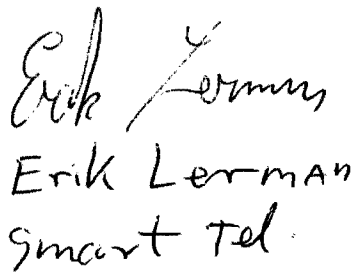 Erik Lerman
Erik Lerman
Smart Tel.